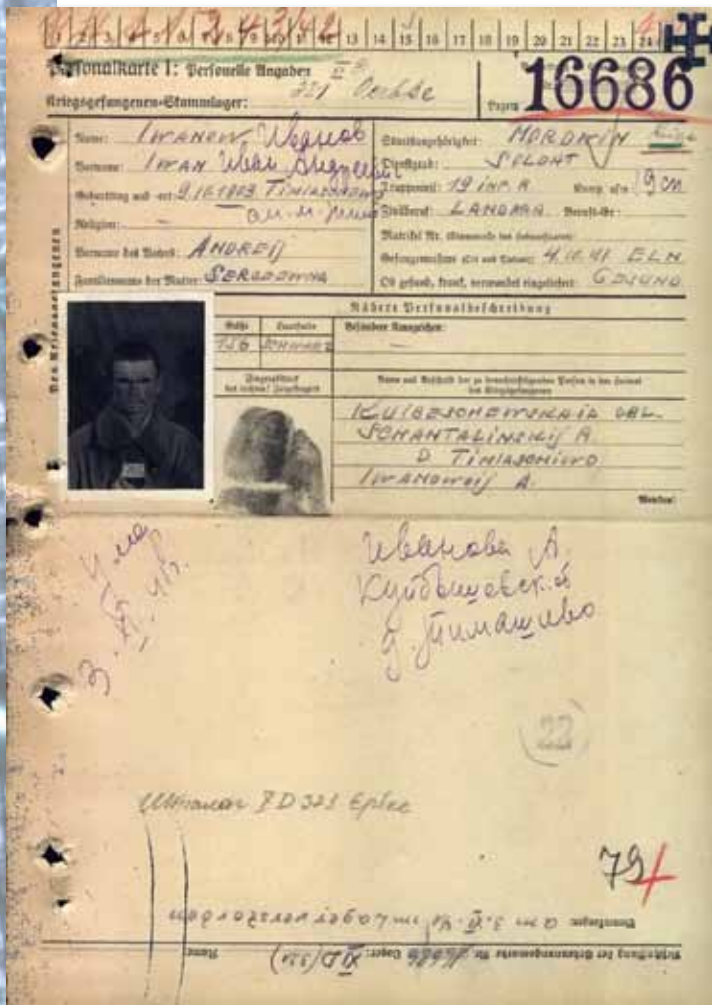 1 2 3 4 5 6 7 8 9 10 11 12 13 14 15 16 17 18 19 20 21 22 23 24
Personalkarte I: Personelle Angaben
Kriegsgefangenen-Stammlager: 321 Oerbke
Lager:
16686
Des Kriegsgefangenen
Name: IWANOW Иванов
Vorname: IWAN Иван Андреевич
Geburtstag und -ort:
Religion: –
Vorname des Vaters: ANDREIJ
Familienname der Mutter:
Staatsangehörigkeit: MORDWIN
Dienstgrad: SOLDAT
Truppenteil: 19 INF. R. Komp. usw.:
Zivilberuf: Berufs-Gr.:
Matrikel Nr. (Stammrolle des Heimatstaates):
Gefangennahme (Ort und Datum):
Ob gesund, krank, verwundet eingeliefert: GESUND
Nähere Personalbeschreibung
Größe Haarfarbe Besondere Kennzeichen:
156 SCHWARZ –
Fingerabdruck des rechten! Zeigefingers
Name und Anschrift der zu benachrichtigenden Person in der Heimat des Kriegsgefangenen
KUIBESCHEWSKAIA OBL.
SCHANTALINSKIJ R.
Wenden!
Умер
3.XI.41г.
Иванова А.
Куйбышевской
д. Тимашево
(22)
79
Bemerkungen: am 3.XI.41 im Lager verstorben
Beschriftung der Erkennungsmarke Nr. 16686 Lager: XI D (321) Name: